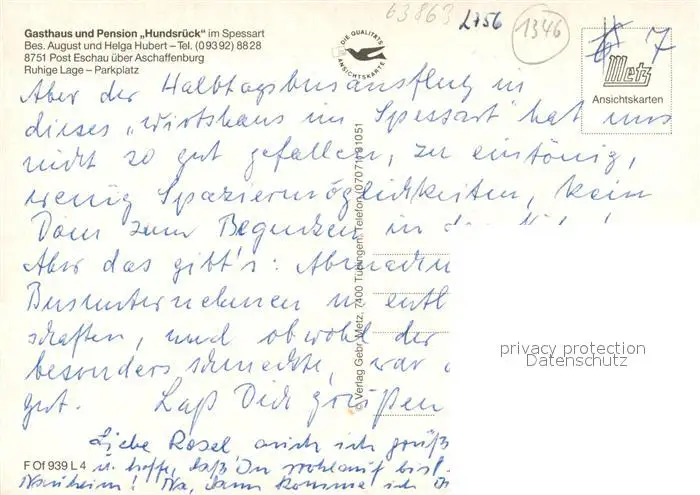 63863 L756 1346
Gasthaus und Pension „Hundsrück" im Spessart
Bes. August und Helga Hubert – Tel. (09392) 8828
8751 Post Eschau über Aschaffenburg
Ruhige Lage – Parkplatz
DIE QUALITÄTS ANSICHTSKARTE
7
Metz
Ansichtskarten
Aber der Halbtagsbusausflug in
dieses „Wirtshaus im Spessart" hat uns
nicht so gut gefallen, zu eintönig,
wenig Spaziermöglichkeiten, kein
Dom zum Begucken in der
Aber das gibt's:
Busunternehmen
schaften, und obwohl der
besonders schmeckte, war
gut. Laß Dich grüßen
Liebe Rosel auch ich grüß
u. hoffe, daß Du wohlauf bist
Nauheim! Na, dann komme ich
© Verlag Gebr. Metz, 7400 Tübingen, Telefon (07071) 81051
F Of 939 L 4
privacy protection
Datenschutz